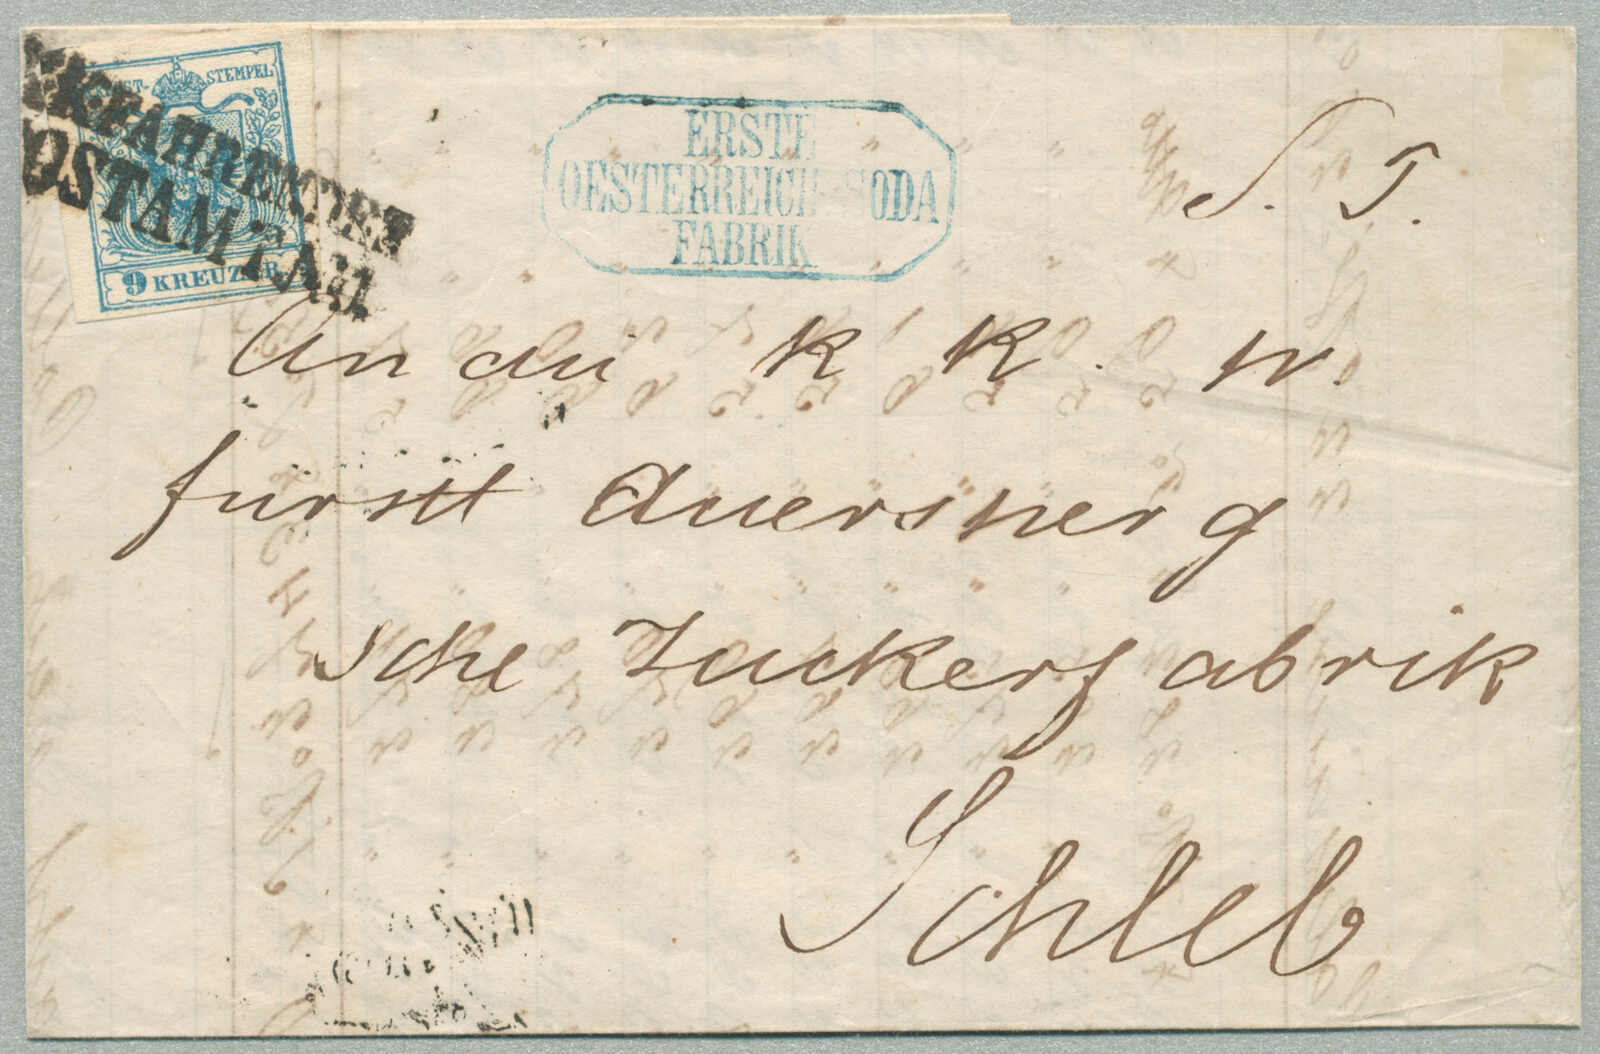 STEMPEL
K.K. FAHRENDES
POSTAMT
9 KREUZER
ERSTE
OESTERREICH SODA
FABRIK
S. T.
An die K K. pr.
fürstl Auersperg
sche Zuckerfabrik
Schleb